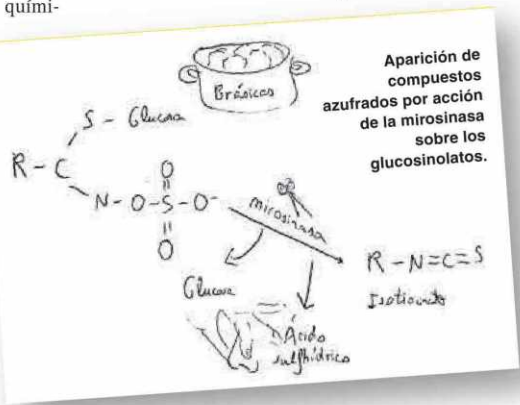 quími-
Aparición de
compuestos
azufrados por acción
de la mirosinasa
sobre los
glucosinolatos.
Brásicas
S - Glucosa
R - C
N - O - S - O⁻
O
O
mirosinasa
R - N = C = S
Isotiocianato
Glucosa
Ácido
sulfhídrico